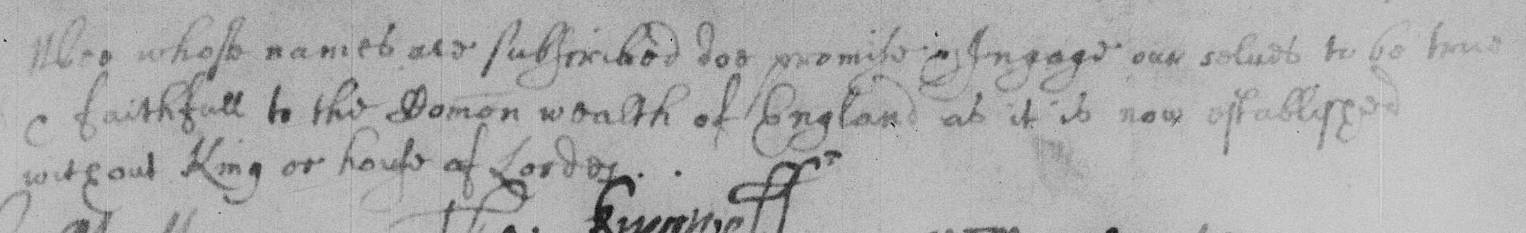 Wee whose names are subscribed doe promise & Ingage our selues to be true
& faithfull to the Common wealth of England as it is now established
without King or house of Lordes . .